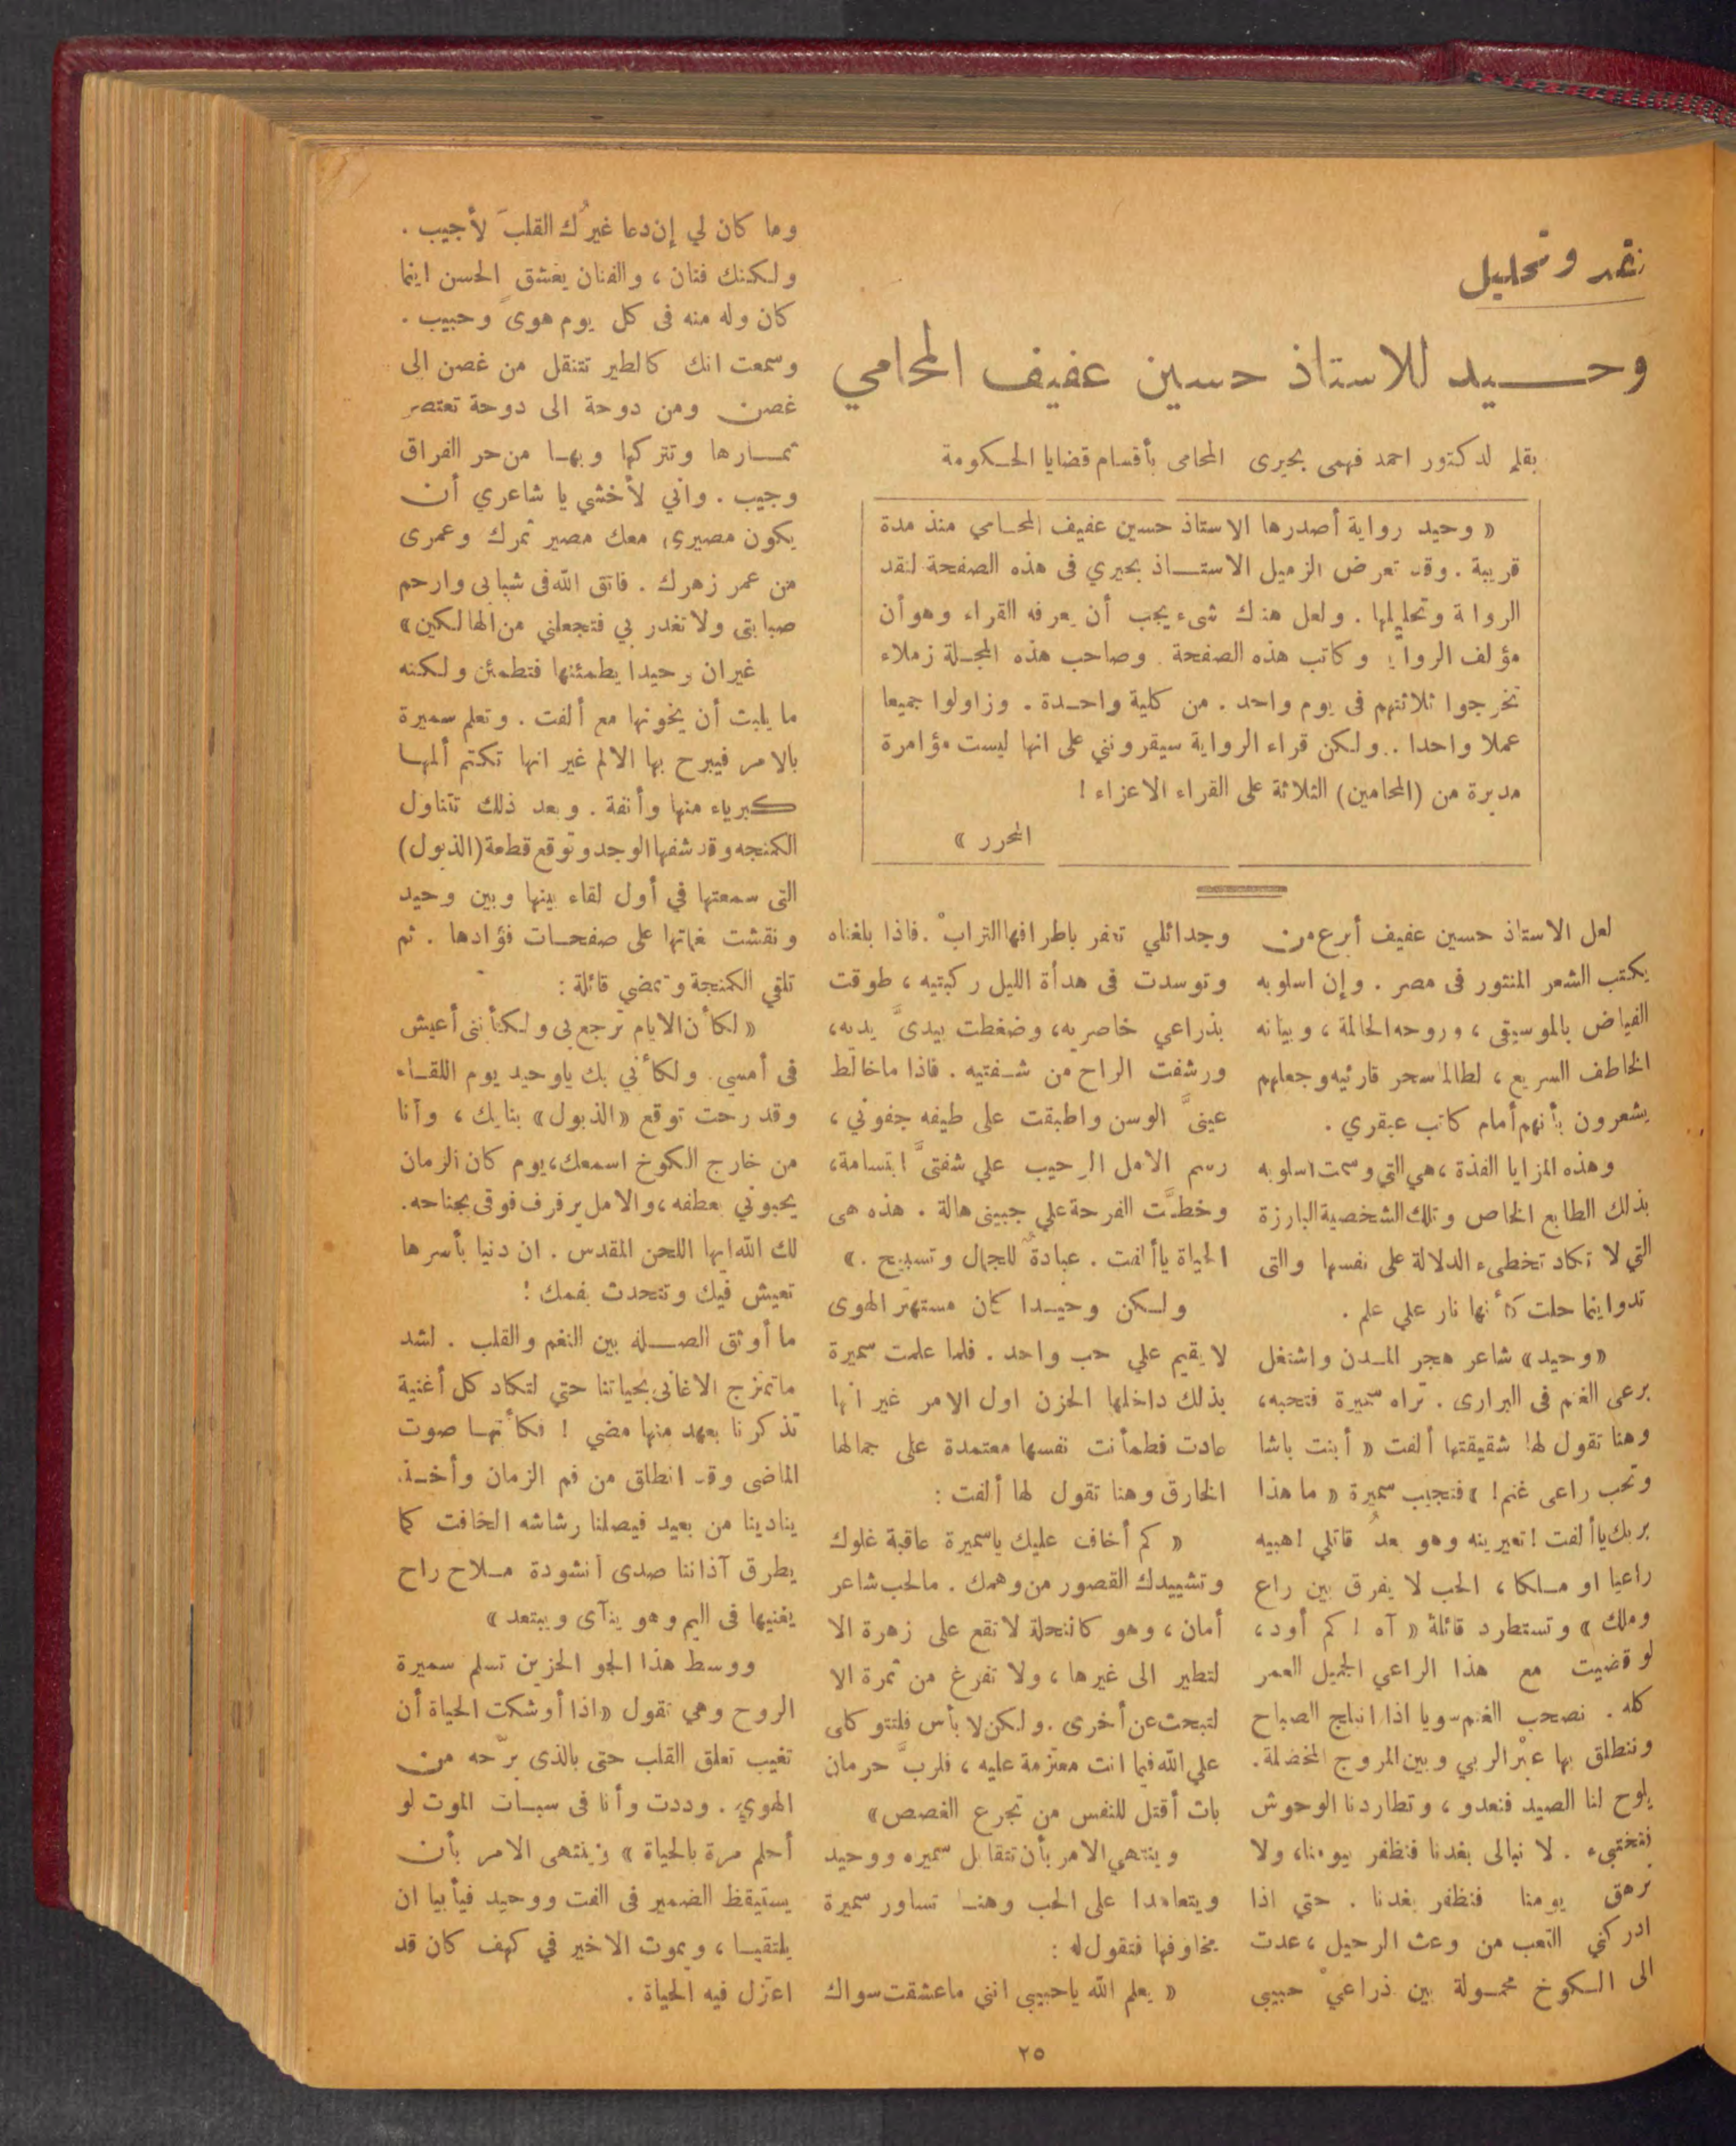 نقد وتحليل
وحيد للاستاذ حسين عفيف المحامي
بقلم لدكتور احمد فهمى بحيرى المحامى بأقسام قضايا الحكومة
« وحيد رواية أصدرها الاستاذ حسين عفيف المحامي منذ مدة
قريبة . وقد تعرض الزميل الاستاذ بحيري فى هذه الصفحة لنقد
الرواية وتحليلها . ولعل هناك شىء يجب أن يعرفه القراء وهو أن
مؤلف الرواية وكاتب هذه الصفحة وصاحب هذه المجلة زملاء
تخرجوا ثلاثتهم فى يوم واحد . من كلية واحدة . وزاولوا جميعا
عملا واحدا .. ولكن قراء الرواية سيقرونني على انها ليست مؤامرة
مدبرة من (المحامين) الثلاثة على القراء الاعزاء !
المحرر »
لعل الاستاذ حسين عفيف أبرع من
يكتب الشعر المنثور فى مصر . وإن اسلوبه
الفياض بالموسيقى ، وروحه الحالمة ، وبيانه
الخاطف السريع ، لطالما سحر قارئيه وجعلهم
يشعرون بأنهم أمام كاتب عبقري .
وهذه المزايا الفذة ، هي التي وسمت اسلوبه
بذلك الطابع الخاص وتلك الشخصية البارزة
التي لا تكاد تخطىء الدلالة على نفسها والتى
تدو اينما حلت كأنها نار علي علم .
« وحيد » شاعر هجر المدن واشتغل
برعى الغنم فى البرارى . تراه سميرة فتحبه ،
وهنا تقول لها شقيقتها ألفت « أبنت باشا
وتحب راعى غنم ! » فتجيب سميرة « ما هذا
بربك يا ألفت ! تعيرينه وهو بعدُ قاتلي ! هبيه
راعيا او ملكا ، الحب لا يفرق بين راع
وملك » وتستطرد قائلة « آه ! كم أود ،
لو قضيت مع هذا الراعي الجميل العمر
كله . نصحب الغنم سويا اذا انبلج الصباح
وننطلق بها عبْر الربي وبين المروج المخضلة .
يلوح لنا الصيد فنعدو ، وتطاردنا الوحوش
فنختبىء . لا نبالى بغدنا فنظفر بيومنا ، ولا
نرهق يومنا فنظفر بغدنا . حتي اذا
ادركني التعب من وعث الرحيل ، عدت
الى الكوخ محمولة بين ذراعيْ حبيبي
وجدائلي تعفر باطرافها الترابْ . فاذا بلغناه
وتوسدت فى هدأة الليل ركبتيه ، طوقت
بذراعي خاصريه ، وضغطت بيدىَّ يديه ،
ورشفت الراح من شفتيه . فاذا ما خالط
عينىَّ الوسن واطبقت على طيفه جفوني ،
رسم الامل الرحيب علي شفتىَّ ابتسامة ،
وخطَّت الفرحة علي جبينى هالة . هذه هى
الحياة يا ألفت . عبادةٌ للجمال وتسبيح . »
ولكن وحيدا كان مستهتر الهوى
لا يقيم علي حب واحد . فلما علمت سميرة
بذلك داخلها الحزن اول الامر غير انها
عادت فطمأنت نفسها معتمدة على جمالها
الخارق وهنا تقول لها ألفت :
« كم أخاف عليك ياسميرة عاقبة غلوك
وتشييدك القصور من وهمك . مالحب شاعر
أمان ، وهو كالنحلة لا تقع على زهرة الا
لتطير الى غيرها ، ولا تفرغ من ثمرة الا
لتبحث عن أخرى . ولكن لا بأس فلتتوكلى
علي الله فيما انت معتزمة عليه ، فلربَّ حرمان
بات أقتل للنفس من تجرع الغصص »
وينتهي الامر بأن تتقابل سميره ووحيد
ويتعاهدا على الحب وهنا تساور سميرة
مخاوفها فتقول له :
« يعلم الله ياحبيبى انني ماعشقت سواك
وما كان لي إن دعا غيرُك القلبَ لأجيب .
ولكنك فنان ، والفنان يعشق الحسن اينما
كان وله منه فى كل يوم هوىً وحبيب .
وسمعت انك كالطير تتنقل من غصن الى
غصن ومن دوحة الى دوحة تعتصر
ثمارها وتتركها وبها من حر الفراق
وجيب . واني لأخشي يا شاعري أن
يكون مصيري معك مصير ثمرك وعمرى
من عمر زهرك . فاتق الله فى شبابى وارحم
صبابتى ولا تغدر بي فتجعلني من الهالكين »
غيران وحيدا يطمئنها فتطمئن ولكنه
ما يلبث أن يخونها مع ألفت . وتعلم سميرة
بالامر فيبرح بها الالم غير انها تكتم ألمها
كبرياء منها وأنفة . وبعد ذلك تتناول
الكمنجه وقد شفها الوجد وتوقع قطعة (الذبول)
التى سمعتها في أول لقاء بينها وبين وحيد
ونقشت نغماتها على صفحات فؤادها . ثم
تلقي الكمنجة وتمضي قائلة :
« لكأن الايام ترجع بى ولكأننى أعيش
فى أمسي . ولكأني بك ياوحيد يوم اللقاء
وقد رحت توقع « الذبول » بنايك ، وأنا
من خارج الكوخ اسمعك ، يوم كان الزمان
يحبوني بعطفه ، والامل يرفرف فوقى بجناحه .
لك الله ايها اللحن المقدس . ان دنيا بأسرها
تعيش فيك وتتحدث بفمك !
ما أوثق الصلة بين النغم والقلب . لشد
ما تمتزج الاغانى بحياتنا حتي لتكاد كل أغنية
تذكرنا بعهد منها مضي ! فكأنها صوت
الماضى وقد انطلق من فم الزمان وأخذ
ينادينا من بعيد فيصلنا رشاشه الخافت كما
يطرق آذاننا صدى أنشودة ملاح راح
يغنيها فى اليم وهو ينآى ويبتعد »
ووسط هذا الجو الحزين تسلم سميرة
الروح وهي تقول « اذا أوشكت الحياة أن
تغيب تعلق القلب حتى بالذى برّحه من
الهوي . وددت وأنا فى سبات الموت لو
أحلم مرة بالحياة » وينتهى الامر بأن
يستيقظ الضمير فى الفت ووحيد فيأبيا ان
يلتقيا ، ويموت الاخير في كهف كان قد
اعتزل فيه الحياة .
٢٥